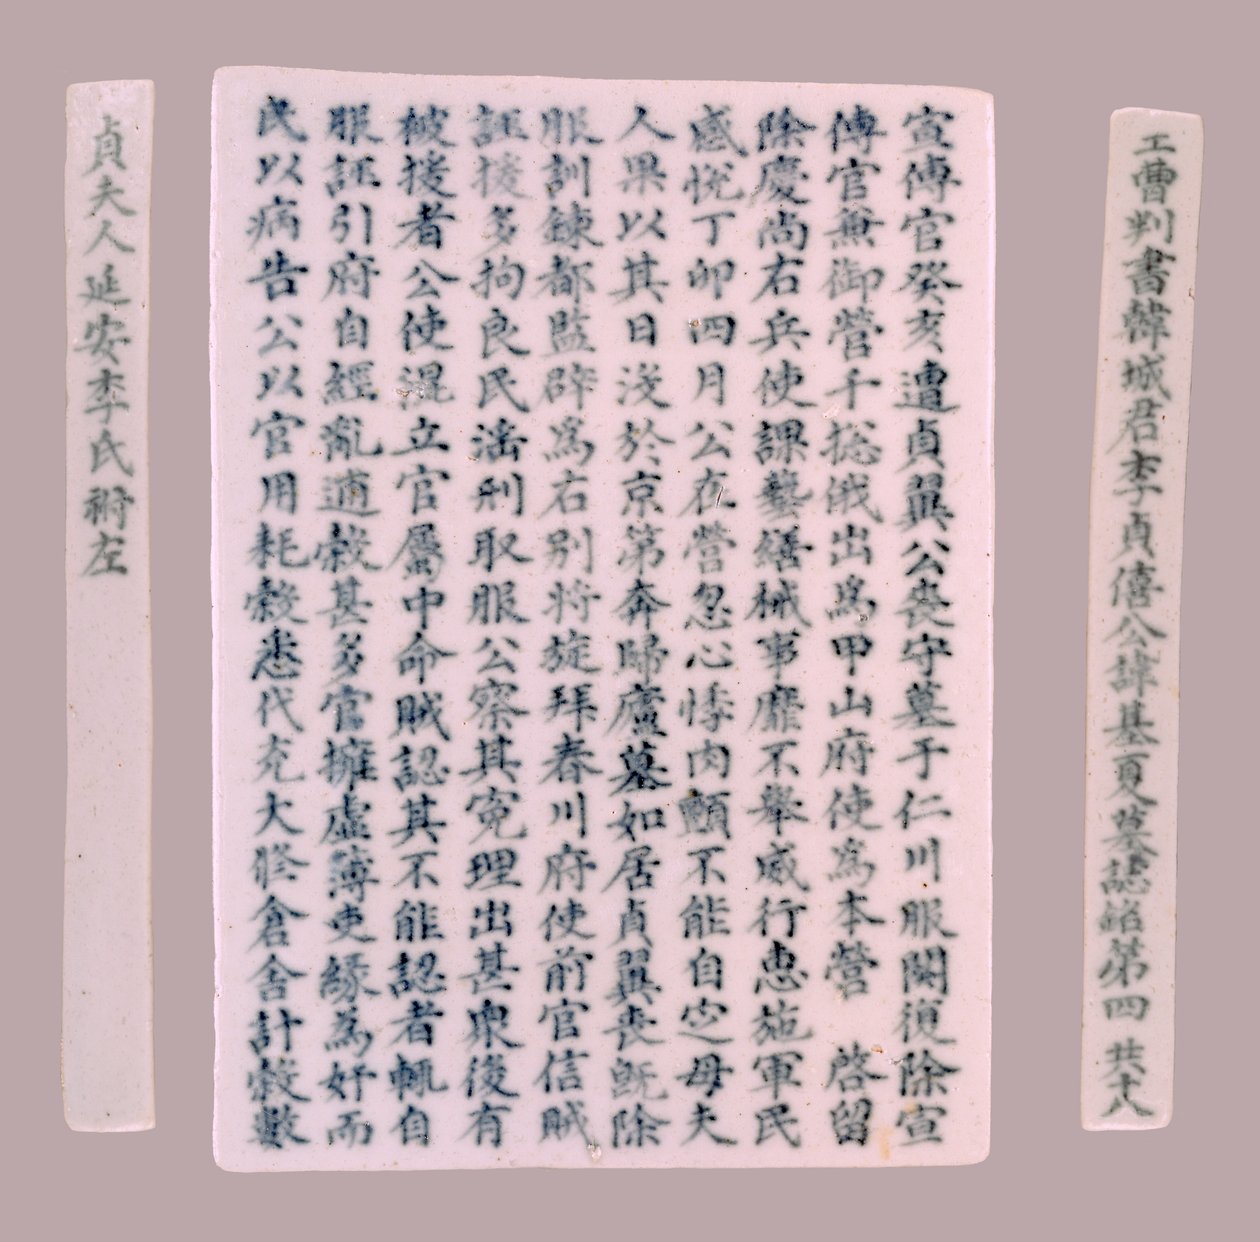 工曹判書韓城君李貞僖公諱基夏墓誌銘第四 共十八
宣傳官癸亥遭貞翼公喪守墓于仁川服闋復除宣
傳官兼御營千摠俄出爲甲山府使爲本營 啓留
除慶尙右兵使課藝繕械事靡不擧威行惠施軍民
感悅丁卯四月公在營忽心悸肉顫不能自定母夫
人果以其日沒於京第奔歸廬墓如居貞翼喪旣除
服訓鍊都監辟爲右別將旋拜春川府使前官信賊
誣援多拘良民滛刑取服公察其寃理出甚衆後有
被援者公使混立官屬中命賊認其不能認者輒自
服誣引府自經亂逋穀甚多官擁虛簿吏緣爲奸而
民以病告公以官用耗穀悉代充大修倉舍計穀數
貞夫人延安李氏祔左